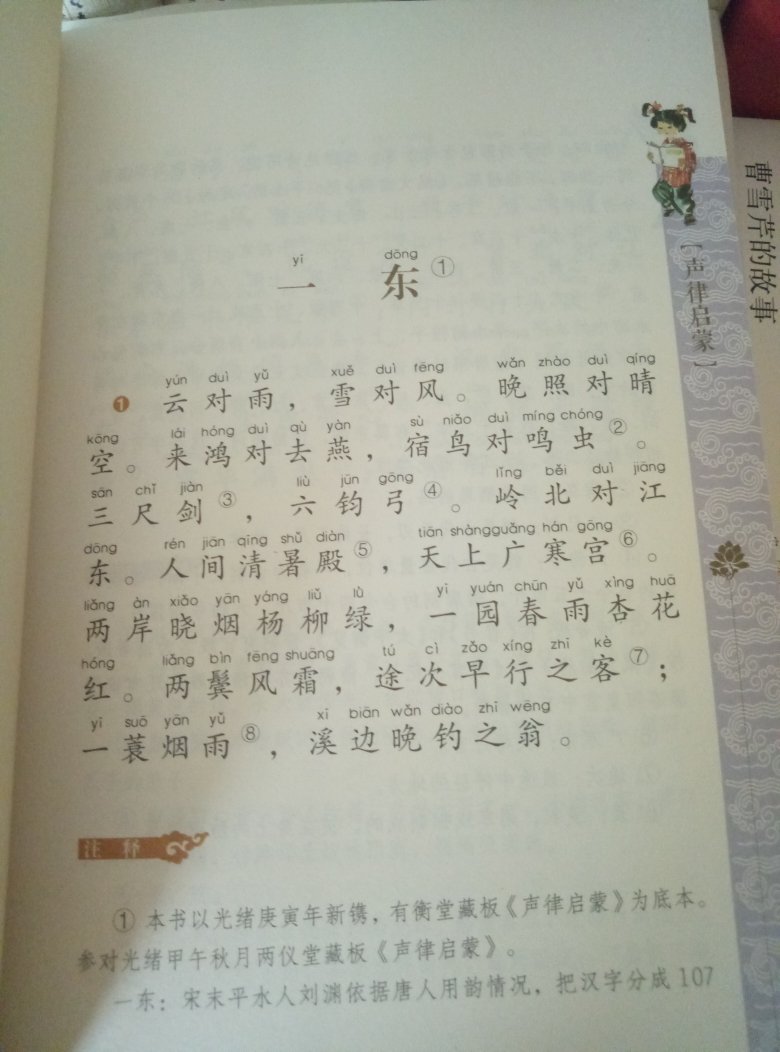 yí dōng
一 东①
yún duì yǔ xuě duì fēng wǎn zhào duì qíng
❶ 云对雨，雪对风。晚照对晴
kōng lái hóng duì qù yàn sù niǎo duì míng chóng
空。来鸿对去燕，宿鸟对鸣虫②。
sān chǐ jiàn liù jūn gōng lǐng běi duì jiāng
三尺剑③，六钧弓④。岭北对江
dōng rén jiān qīng shǔ diàn tiān shàng guǎng hán gōng
东。人间清暑殿⑤，天上广寒宫⑥。
liǎng àn xiǎo yān yáng liǔ lǜ yì yuán chūn yǔ xìng huā
两岸晓烟杨柳绿，一园春雨杏花
hóng liǎng bìn fēng shuāng tú cì zǎo xíng zhī kè
红。两鬓风霜，途次早行之客⑦；
yì suō yān yǔ xī biān wǎn diào zhī wēng
一蓑烟雨⑧，溪边晚钓之翁。
注释
①本书以光绪庚寅年新镌，有衡堂藏板《声律启蒙》为底本。
参对光绪甲午秋月两仪堂藏板《声律启蒙》。
一东：宋末平水人刘渊依据唐人用韵情况，把汉字分成 107
[声律启蒙]
曹雪芹的故事